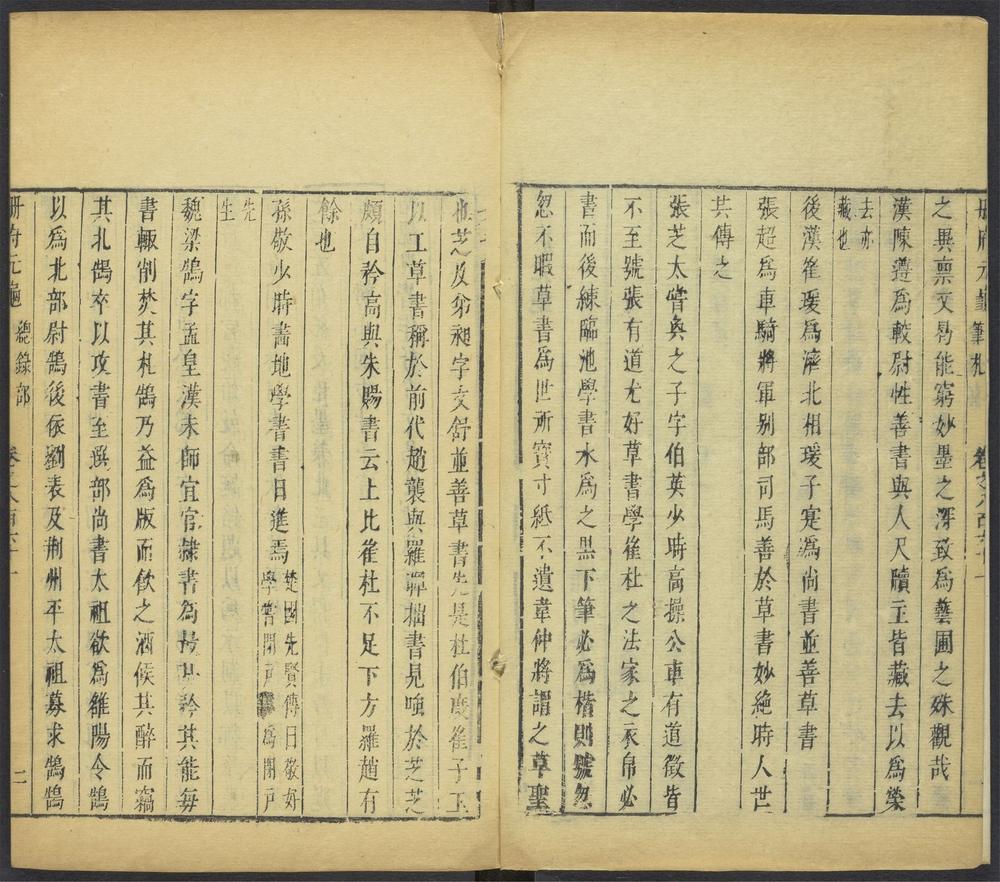 冊府元龜筆札 卷之八百六十一
之異稟文昜能窮妙墨之深致為藝圃之殊觀哉
漢陳遵為較尉性善書與人尺牘主皆藏去以為榮
去亦
藏也
後漢崔瑗為濟北相瑗子寔為尚書並善草書
張超為車騎將軍別部司馬善於草書妙絕時人世
共傳之
張芝太常奐之子字伯英少時高操公車有道徵皆
不至號張有道尤好草書學崔杜之法家之衣帛必
書而後練臨池學書水為之黑下筆必為楷則號怱
忽不暇草書為世所寶寸紙不遺韋仲將謂之草聖
也芝及弟昶字文舒並善草書先是杜伯度崔子玉
以工草書稱於前代趙襲與羅暉拙書見嗤於芝芝
頗自矜高與朱賜書云上比崔杜不足下方羅趙有
餘也
孫敬少時畫地學書書日進焉
楚國先賢傳曰敬好
學嘗閉戶 為閉戶
先
生
魏梁鵠字孟皇漢末師宜官隸書為最 矜其能每
書輙削焚其札鵠乃益為版而飲之酒候其醉而竊
其北鵠卒以攻書至選部尚書太祖欲為雒陽令鵠
以為北部尉鵠後依劉表及荆州平太祖募求鵠鵠
冊府元龜 總錄部 卷之八百六十一 二